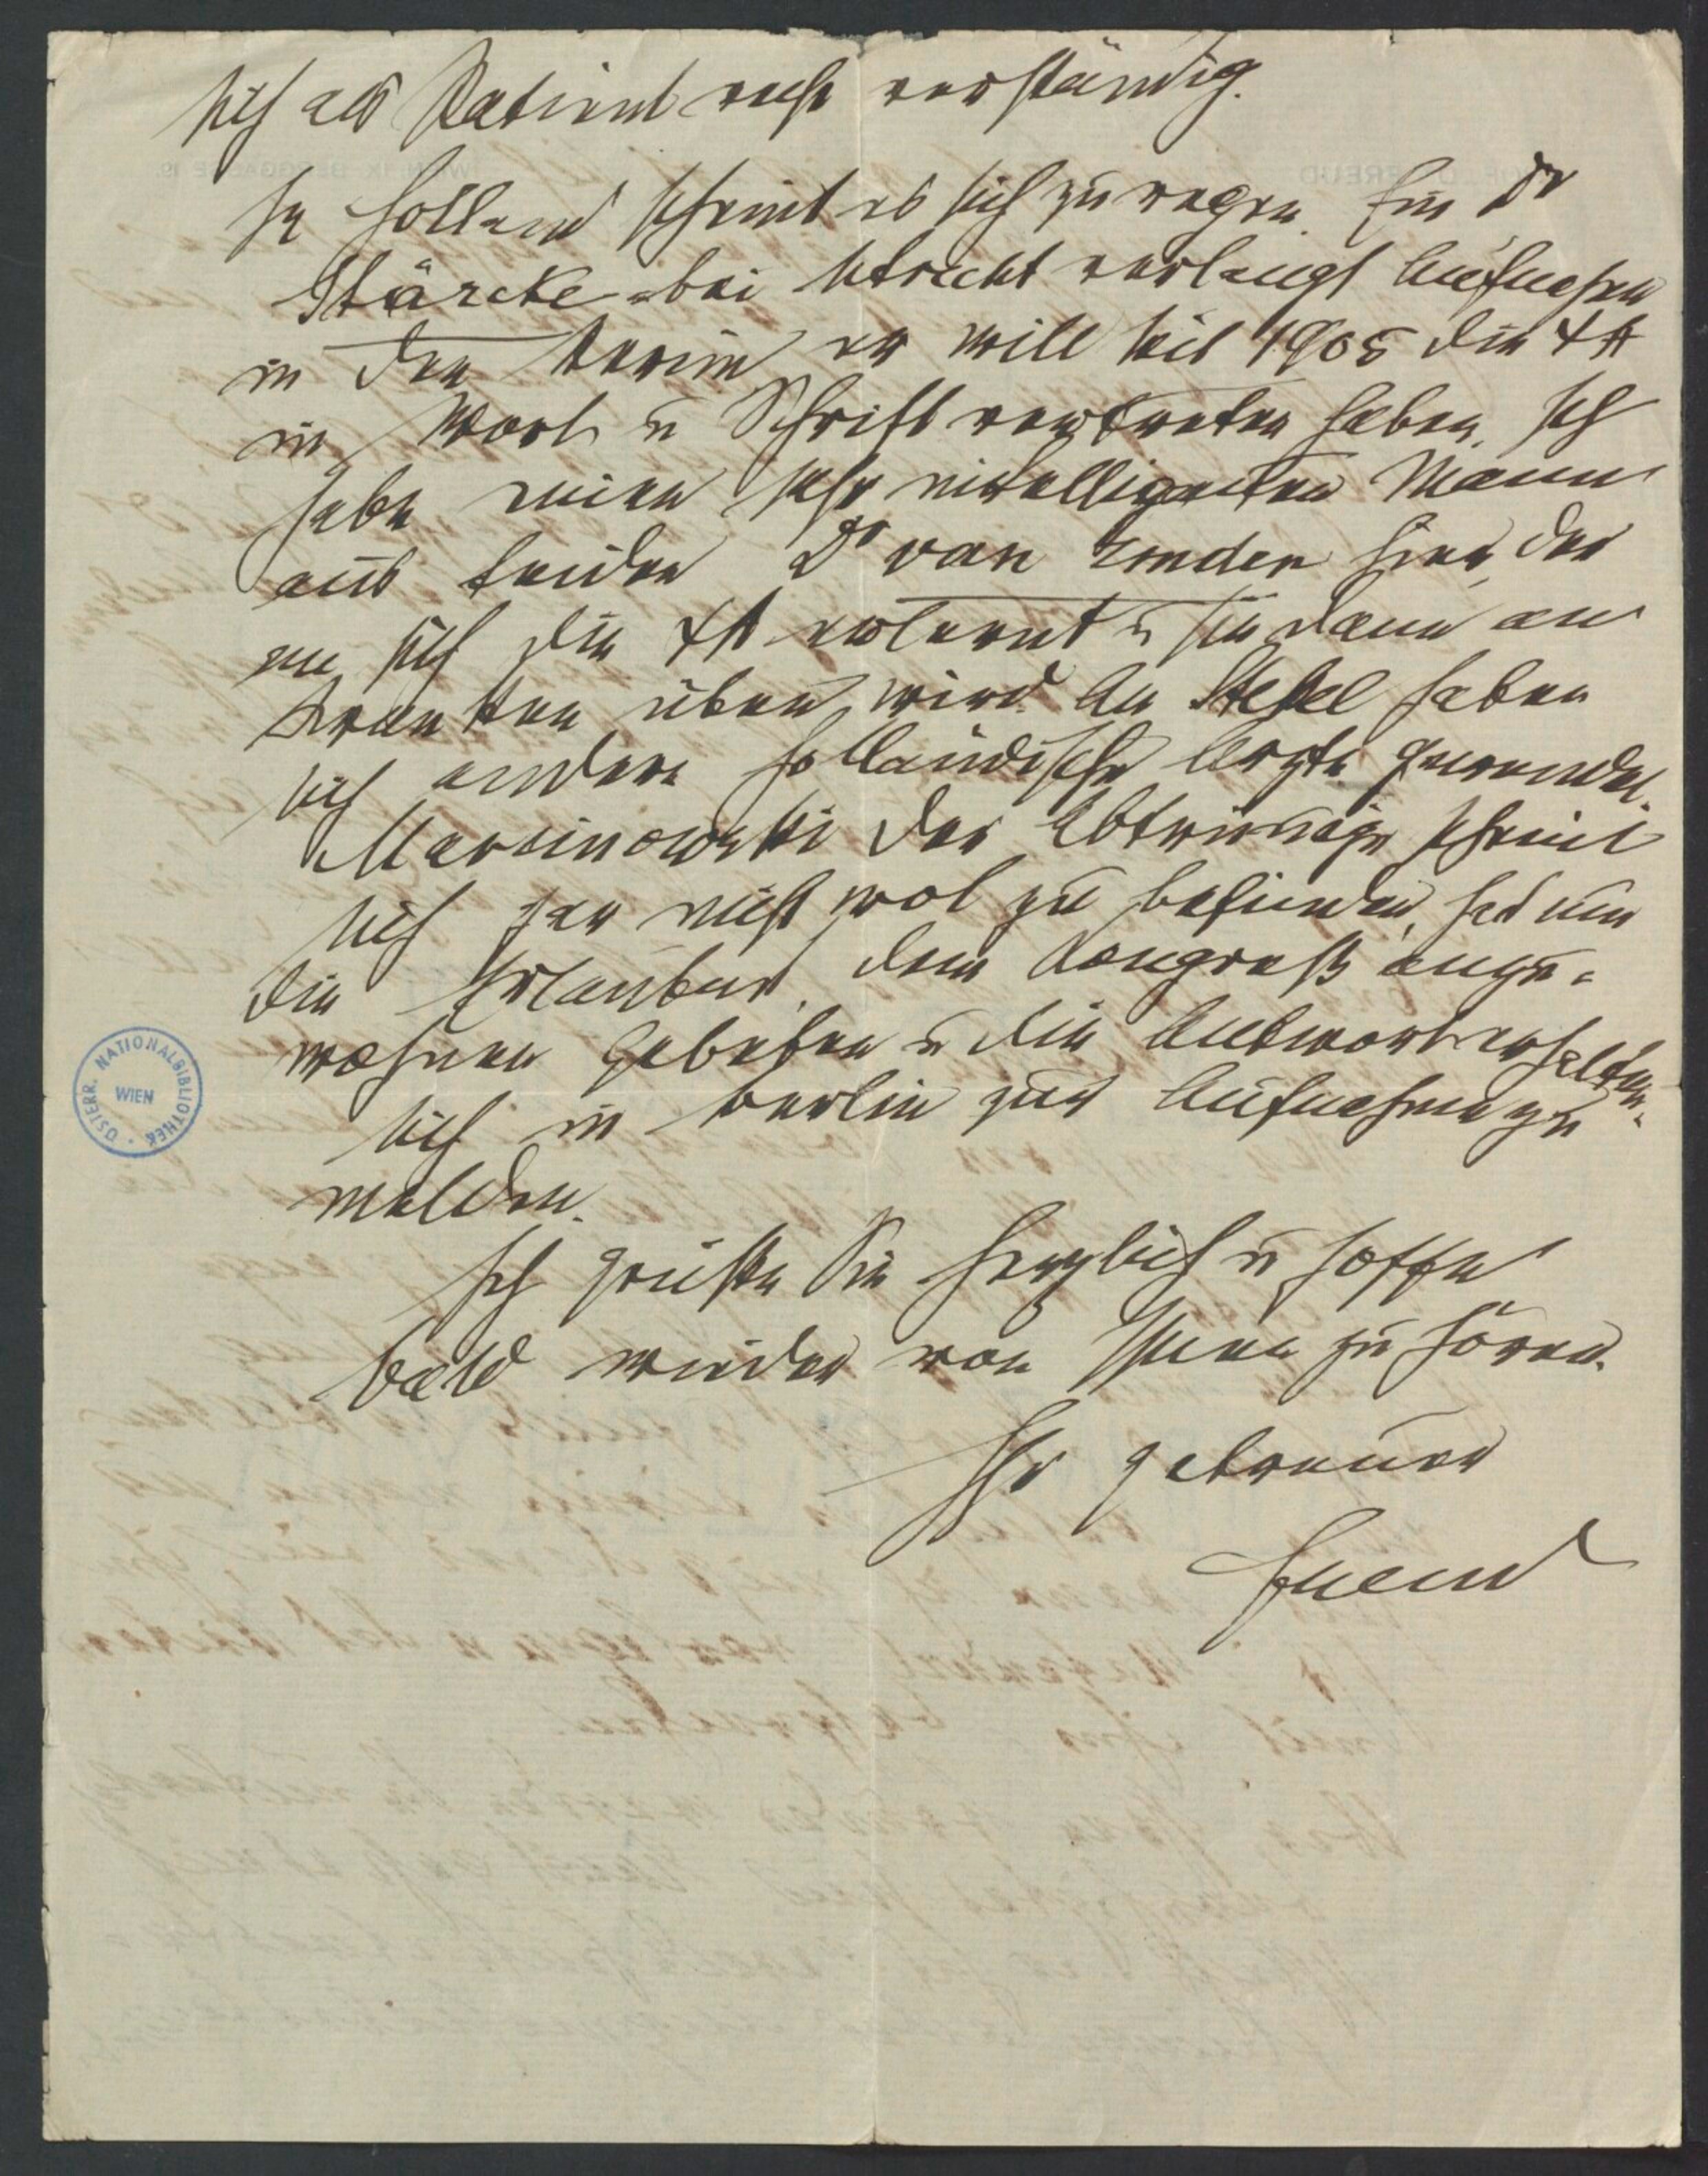 sich als Patient recht verständig.
In Holland scheint es sich zu regen. Ein Dr
Stärcke bei Utrecht verlangt Aufnahme
in den Verein, er will seit 1905 die ΨA
in Wort u Schrift vertreten haben. Ich
habe einen sehr intelligenten Mann
aus Leiden Dr van Emden hier, der
an sich die ΨA erlernt u sie dann an
Kranken üben wird. An Stekel haben
sich andere holländische Ärzte gewendet.
Marcinowski der Abtrünnige scheint
sich gar nicht wol zu befinden, hat um
die Erlaubnis, dem Kongreß anzu-
wohnen gebeten u die Antwort erhalten,
sich in Berlin zur Aufnahme zu
melden.
Ich grüße Sie herzlich u hoffe
bald wieder von Ihnen zu hören.
Ihr getreuer
Freud
ÖSTERR. NATIONALBIBLIOTHEK
WIEN